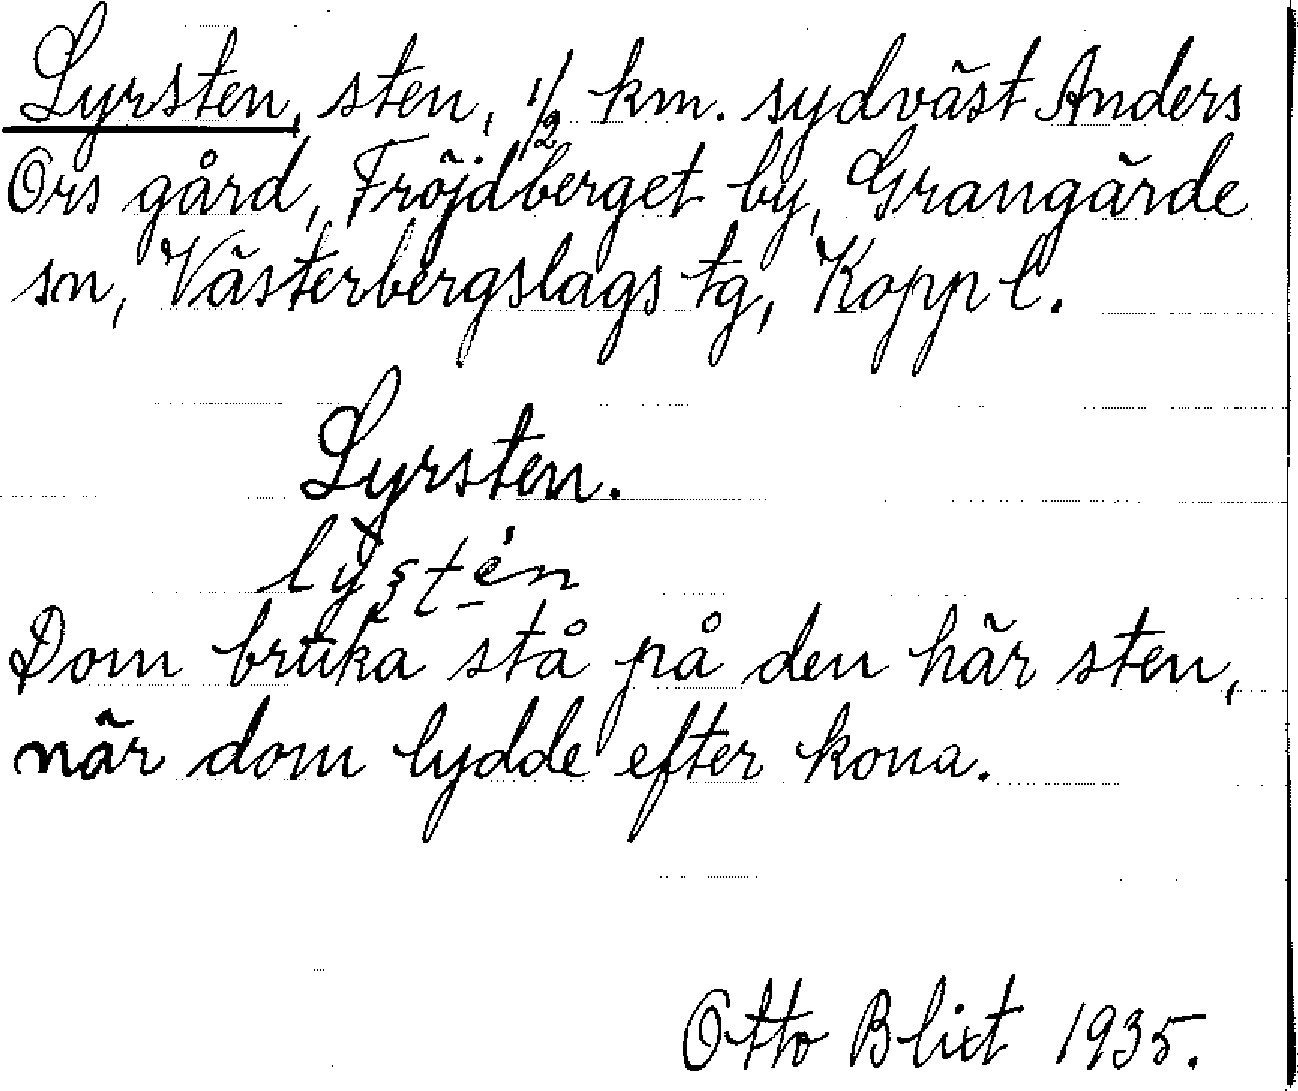 Lyrsten, sten, 1/2 km. sydväst Anders
Ors gård, Fröjdberget by, Grangärde
sn, Västerbergslags tg, Kopp l.
Lyrsten.
Dom bruka stå på den här sten,
när dom lydde efter kona.
Otto Blixt 1935.